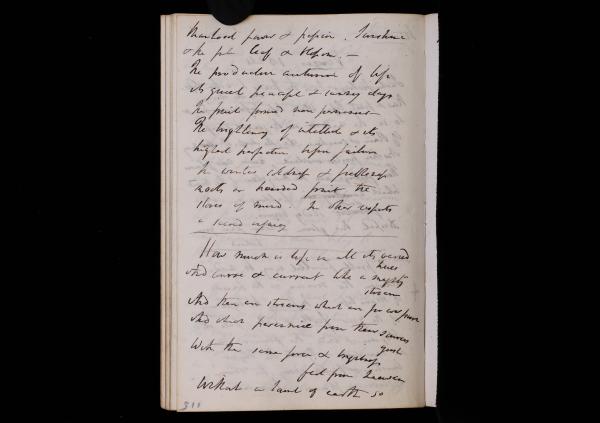 Manhood power & passion. Sunshine
& the leaf & blossom. —
The productive autumn of life
its quiet peaceful & sunny days
The fruit formed
The brightening of intellect & its
highest perfection before failure
The winter &
or hoarded fruit the
stores of mind. In other respects
a second infancy
How much is life in all its varied
hues
And course & current like a mighty
stream
And there are streams which are for ever pure
And which perennial from their sources
gush
With the same force & brightness
fed from
What a taint of earth so
311